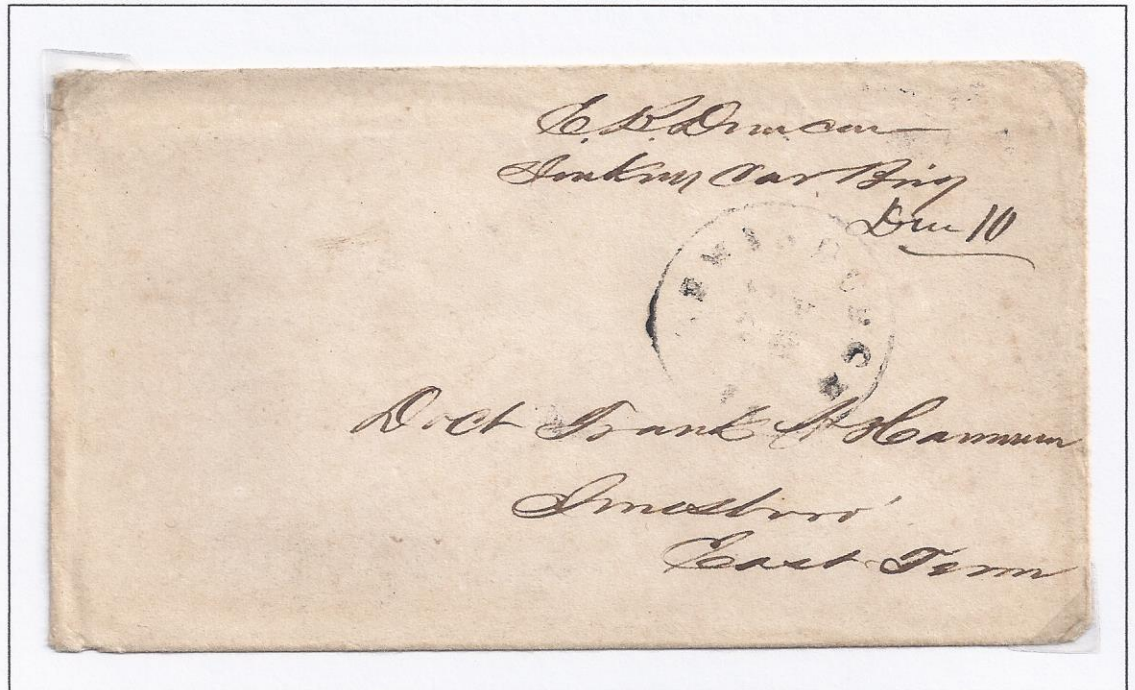 E. R. Duncan
Jenkins Cav Brig
Due 10
LEWISBURG
Doct Frank A Hannum
Jonesboro'
East Tenn